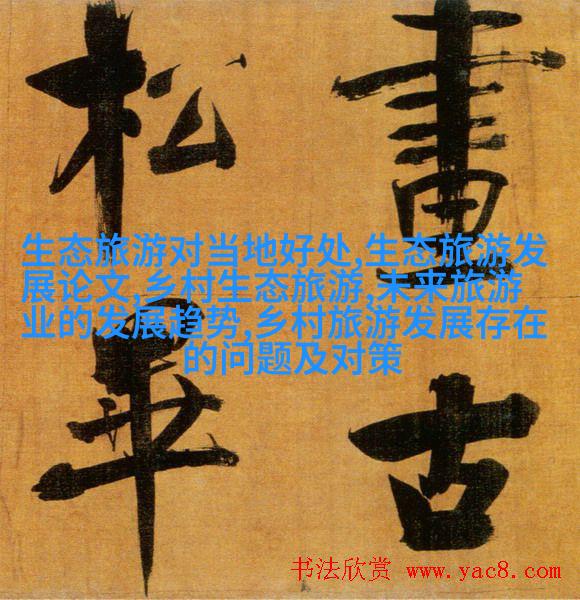 畫古
松畢
生态旅游对当地好处,生态旅游发
展论文,乡村生态旅游,未来旅游
业的发展趋势,乡村旅游发展存在
的问题及对策
书法欣赏 www.yac8.com